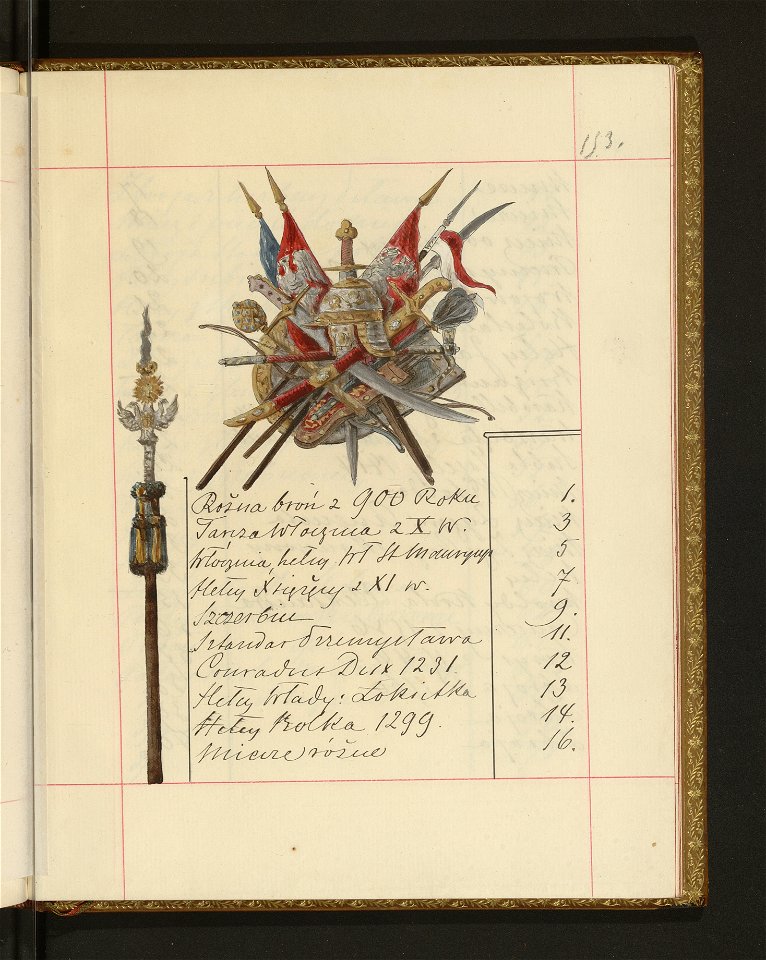 153.
Rożna broń z 900 Roku 1.
Tarcza Włócznia z X W. 3
Włócznia, hełm Wł St Maurycyo 5
Hełm Xiężęcy z XI w. 7
Szczerbiec 9.
Sztandar Przemysława 11.
Conradus Dux 1231. 12
Hełm Włady: Łokietka 13
Hełm Bolka 1299. 14.
Miecze różne 16.